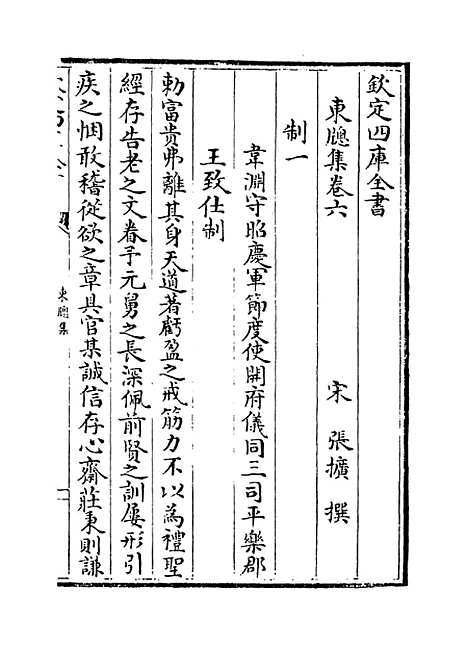 欽定四庫全書
東牕集卷六
宋 張擴 撰
制一
韋淵守昭慶軍節度使開府儀同三司平樂郡
王致仕制
勅富貴弗離其身天道著虧盈之戒筋力不以為禮聖
經存告老之文眷予元舅之長深佩前賢之訓屢形引
疾之悃敢稽從欲之章具官某誠信存心齋莊秉則謙
東牕集
一